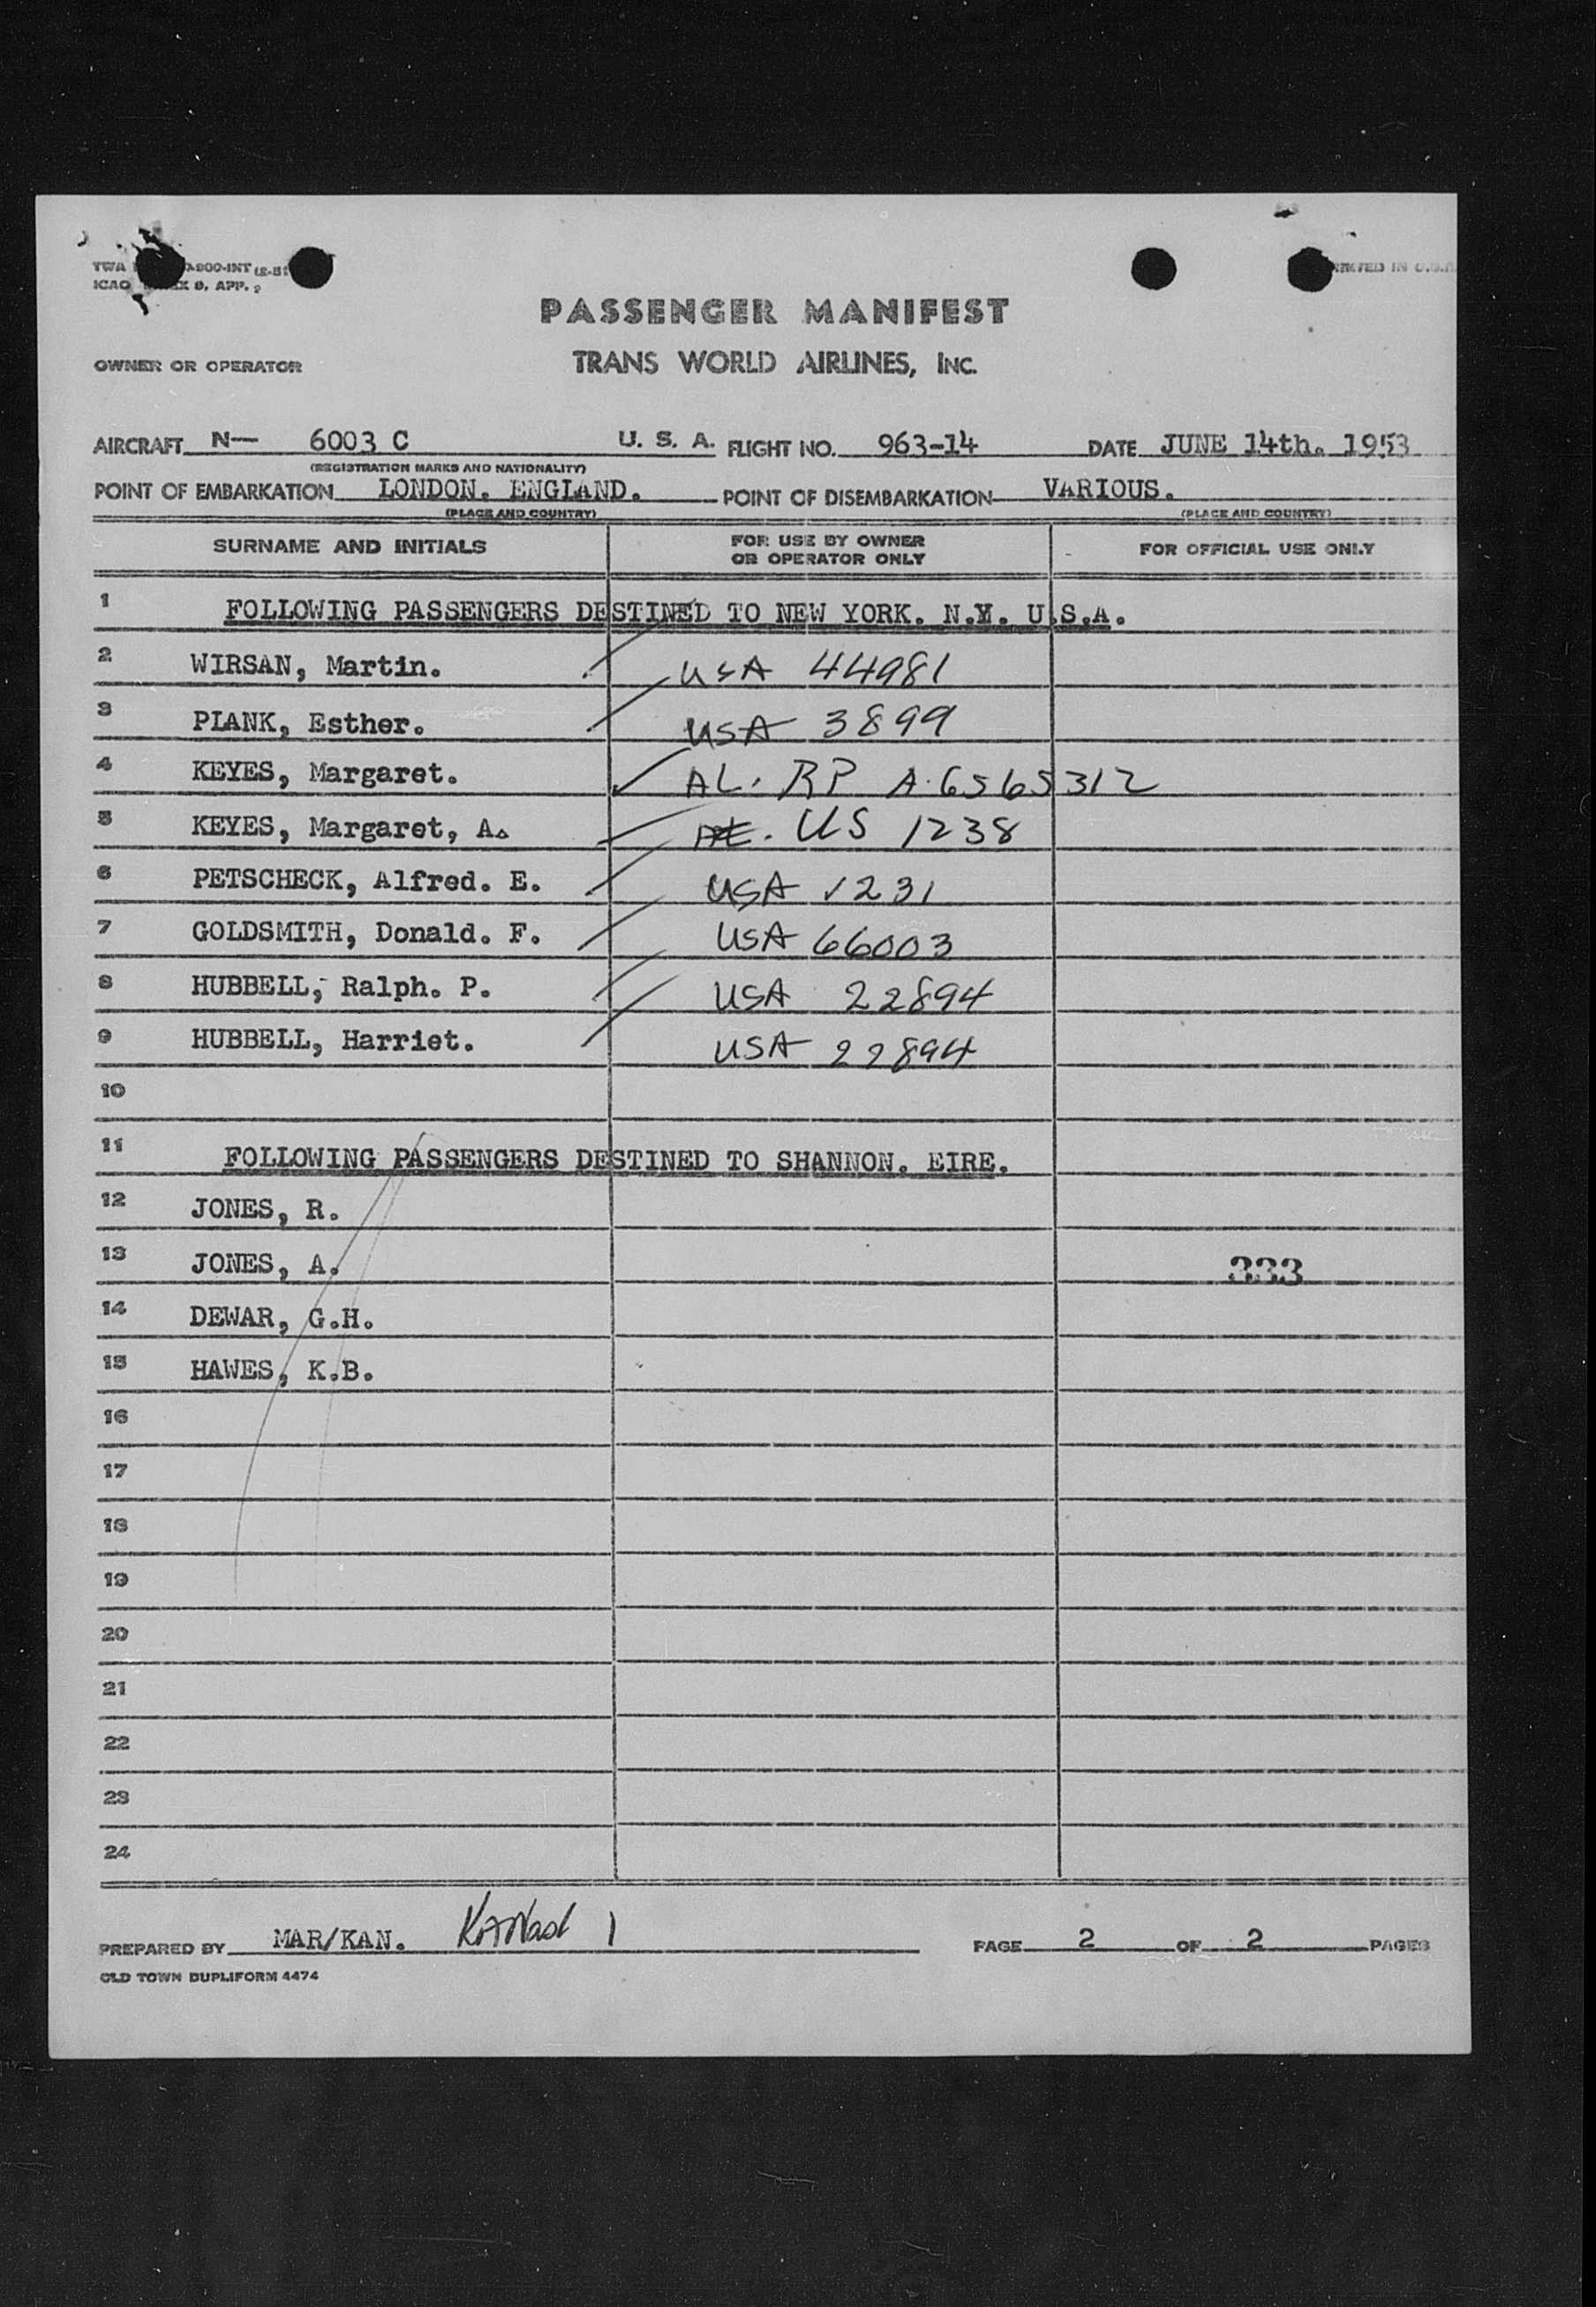 TWA 800-INT (2-51
ICAO X 9, APP.
PRINTED IN U.S.A.
PASSENGER MANIFEST
OWNER OR OPERATOR TRANS WORLD AIRLINES, INC.
AIRCRAFT N— 6003 C U. S. A. FLIGHT NO. 963-14 DATE JUNE 14th. 1953
(REGISTRATION MARKS AND NATIONALITY)
POINT OF EMBARKATION LONDON. ENGLAND. POINT OF DISEMBARKATION VARIOUS.
(PLACE AND COUNTRY) (PLACE AND COUNTRY)
SURNAME AND INITIALS FOR USE BY OWNER OR OPERATOR ONLY FOR OFFICIAL USE ONLY
1 FOLLOWING PASSENGERS DESTINED TO NEW YORK. N.Y. U.S.A.
2 WIRSAN, Martin. USA 44981
3 PLANK, Esther. USA 3899
4 KEYES, Margaret. AL. RP A.6565312
5 KEYES, Margaret, A. US 1238
6 PETSCHECK, Alfred. E. USA 1231
7 GOLDSMITH, Donald. F. USA 66003
8 HUBBELL, Ralph. P. USA 22894
9 HUBBELL, Harriet. USA 22894
10
11 FOLLOWING PASSENGERS DESTINED TO SHANNON. EIRE.
12 JONES, R.
13 JONES, A. 333
14 DEWAR, G.H.
15 HAWES, K.B.
16
17
18
19
20
21
22
23
24
PREPARED BY MAR/KAN. PAGE 2 OF 2 PAGES
OLD TOWN DUPLIFORM 4474